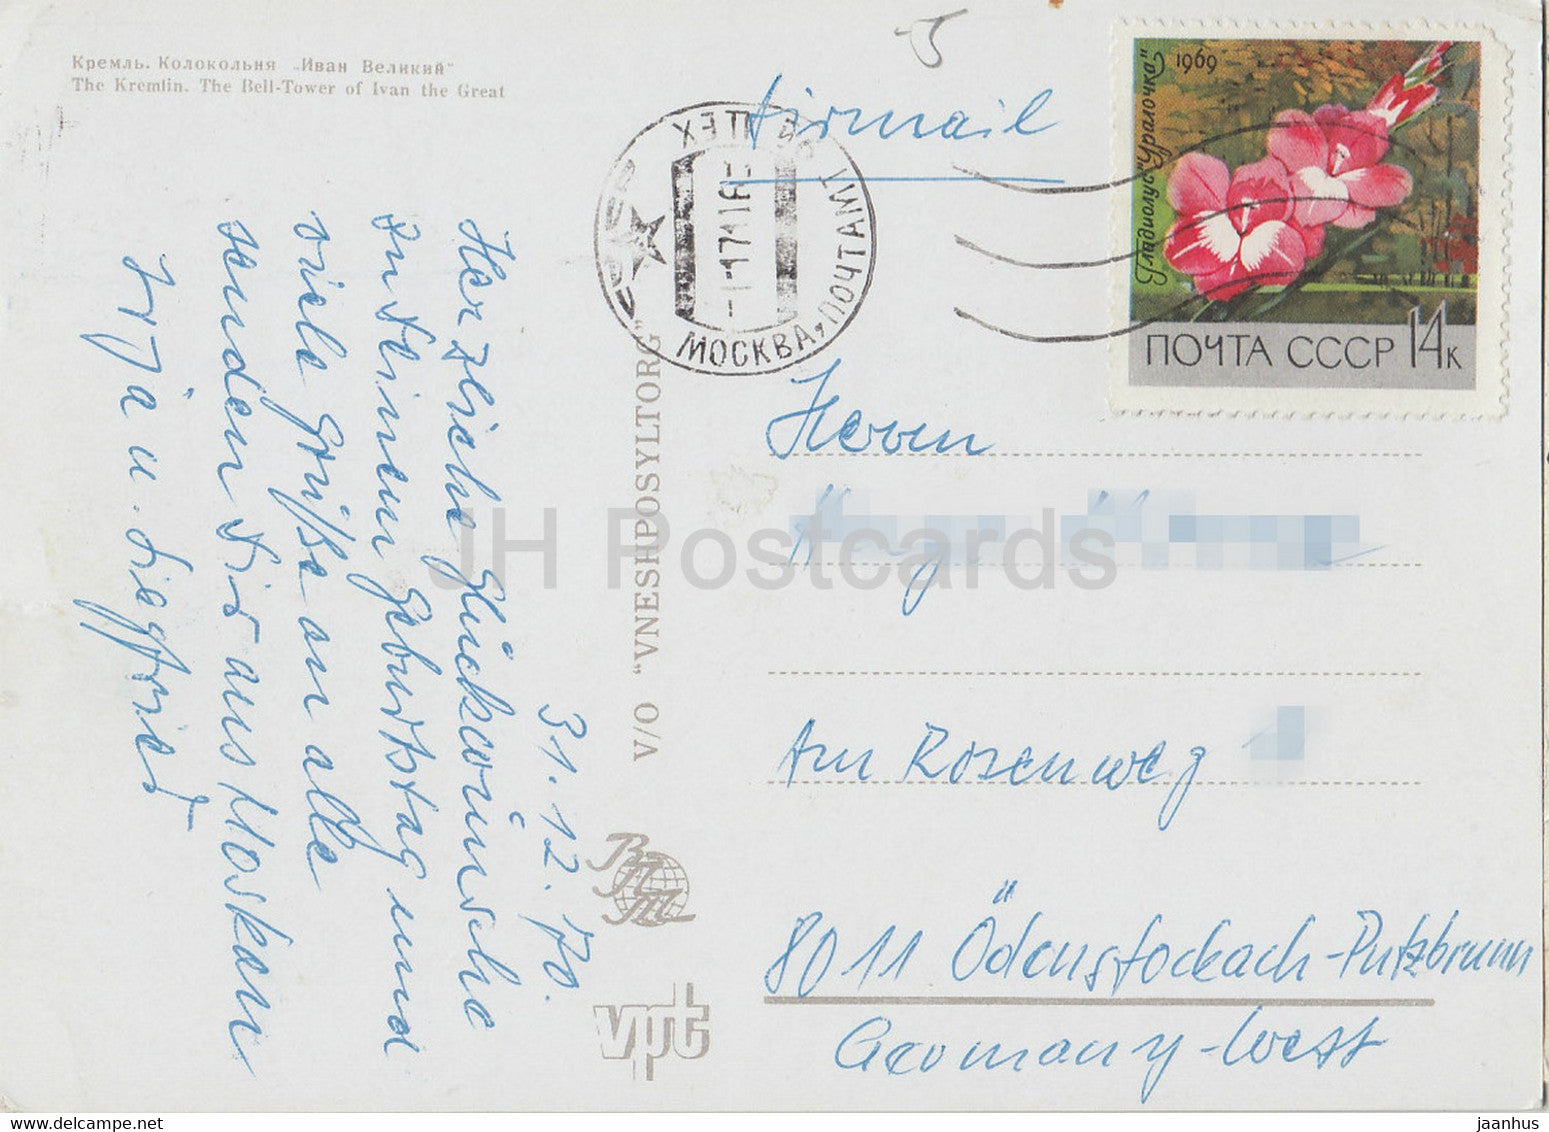 Кремль. Колокольня „Иван Великий"
The Kremlin. The Bell-Tower of Ivan the Great
Airmail
МОСКВА ПОЧТАМТ
1969
Гладиолус „Уралочка"
ПОЧТА СССР 14к
31.12.70.
Herzliche Glückwünsche
zu Deinem Geburtstag und
viele Grüße an alle
senden Dir aus Moskau
u. Siegfried
V/O "VNESHPOSYLTORG"
ВПТ
vpt
Herrn
Am Rosenweg
8011 Ödenstockach-Putzbrunn
Germany-West
JH Postcards
jaanhus